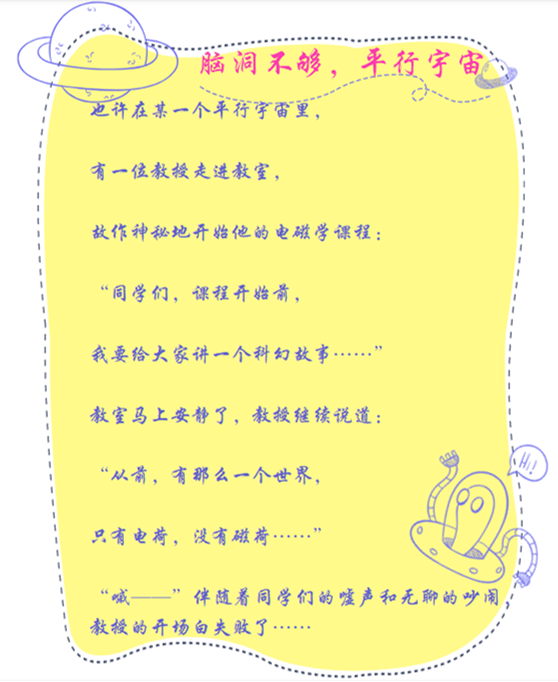 脑洞不够，平行宇宙
也许在某一个平行宇宙里，
有一位教授走进教室，
故作神秘地开始他的电磁学课程：
“同学们，课程开始前，
我要给大家讲一个科幻故事……”
教室马上安静了，教授继续说道：
“从前，有那么一个世界，
只有电荷，没有磁荷……”
“喊——”伴随着同学们的嘘声和无聊的吵闹，
教授的开场白失败了……
Hi!